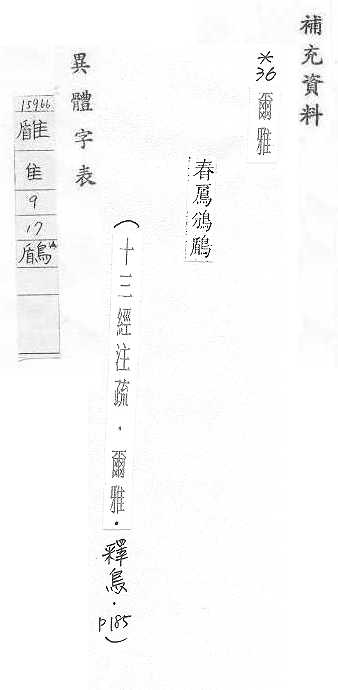 補充資料
*36 爾雅
春鳸鳻
(十三經注疏．爾雅．釋鳥．P185)
異體字表
15966
隹
9
17